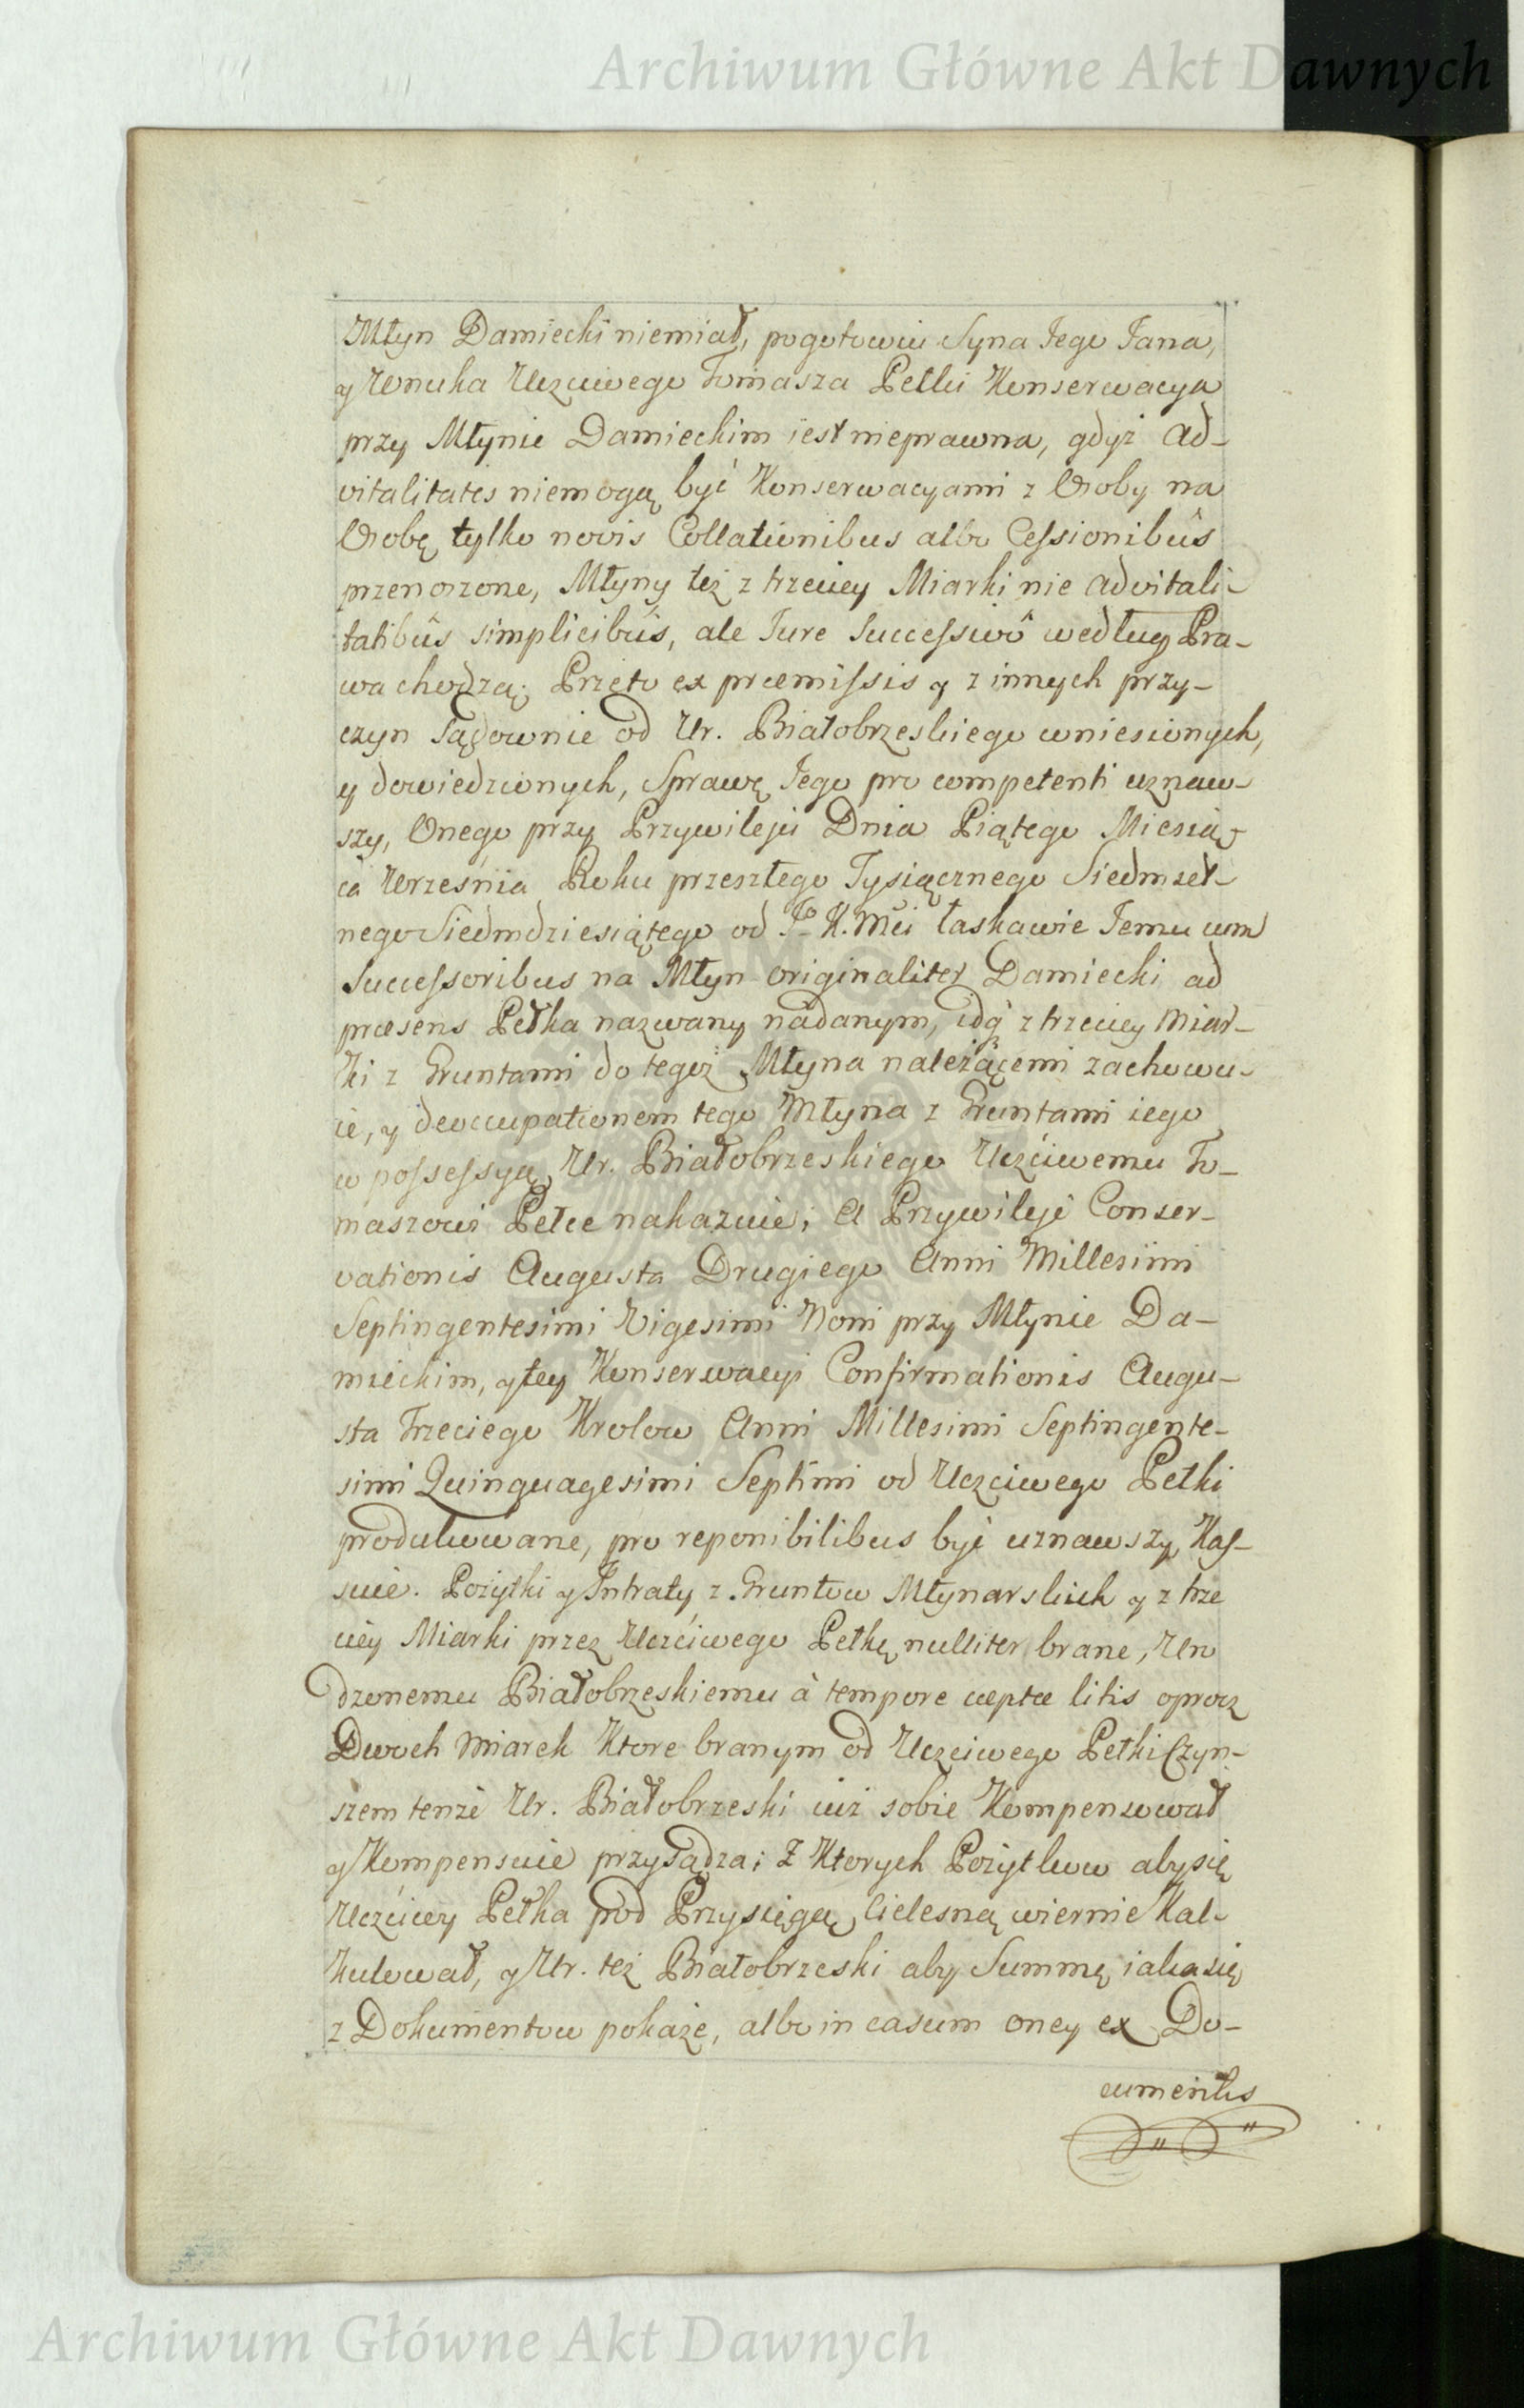 Archiwum Główne Akt Dawnych
Młyn Damiecki niemiał, pogotowiu Syna Jego Jana,
y Wnuka Uczciwego Tomasza Pełki Konserwacya
przy Młynie Damieckim iest nieprawna, gdyż ad-
vitalitates niemogą być Konserwacyami z Osoby na
Osobę tylko novis Collationibus albo Cessionibûs
przenoszone, Młyny też z trzeciey Miarki nie advitali-
tatibûs simplicibûs, ale Jure Successivô według Pra-
wa chodzą; Przeto ex præmissis y z innych przy-
czyn sądownie od Ur. Białobrzeskiego wniesionych,
y dowiedzionych, Sprawę Jego pro competenti uznaw-
szy, Onego przy Przywileju Dnia Piątego Miesią-
ca Września Roku przeszłego Tysiącznego Siedmset-
nego Siedmdziesiątego od Jo K. Mci łaskawie Jemu cum
Successoribus na Młyn originaliter Damiecki ad
præsens Pełka nazwany nadanym, idq z trzeciey Miar-
ki z Gruntami do tegoż Młyna należącemi zachowu-
ie, y deoccupationem tego Młyna z Gruntami iego
w possessyą Ur. Białobrzeskiego Uczciwemu To-
maszowi Pełce nakazuie; A Przywileje Conser-
vationis Augusta Drugiego Anni Millesimi
Septingentesimi Vigesimi Noni przy Młynie Da-
mieckim, y tey Konserwacyi Confirmationis Augu-
sta Trzeciego Krolow Anni Millesimi Septingente-
simi Quinquagesimi Septimi od Uczciwego Pełki
produkowane, pro reponibilibus być uznawszy, Kas-
suie. Pożytki y Intraty z Gruntow Młynarskich y z trze
ciey Miarki przez Uczciwego Pełkę nulliter brane, Uro
dzonemu Białobrzeskiemu à tempore cæptæ litis oprocz
Dwoch Miarek Ktore branym od Uczciwego Pełki Czyn-
szem tenże Ur. Białobrzeski iuż sobie Kompensował
y Kompensuie przysądza; Z Ktorych Pożytkow aby się
Uczciwy Pełka pod Przysięgą Cielesną wiernie Kal-
kulował, y Ur. też Białobrzeski aby Summę iaka się
z Dokumentow pokaże, albo in casum oney ex Do-
cumentis
Archiwum Główne Akt Dawnych